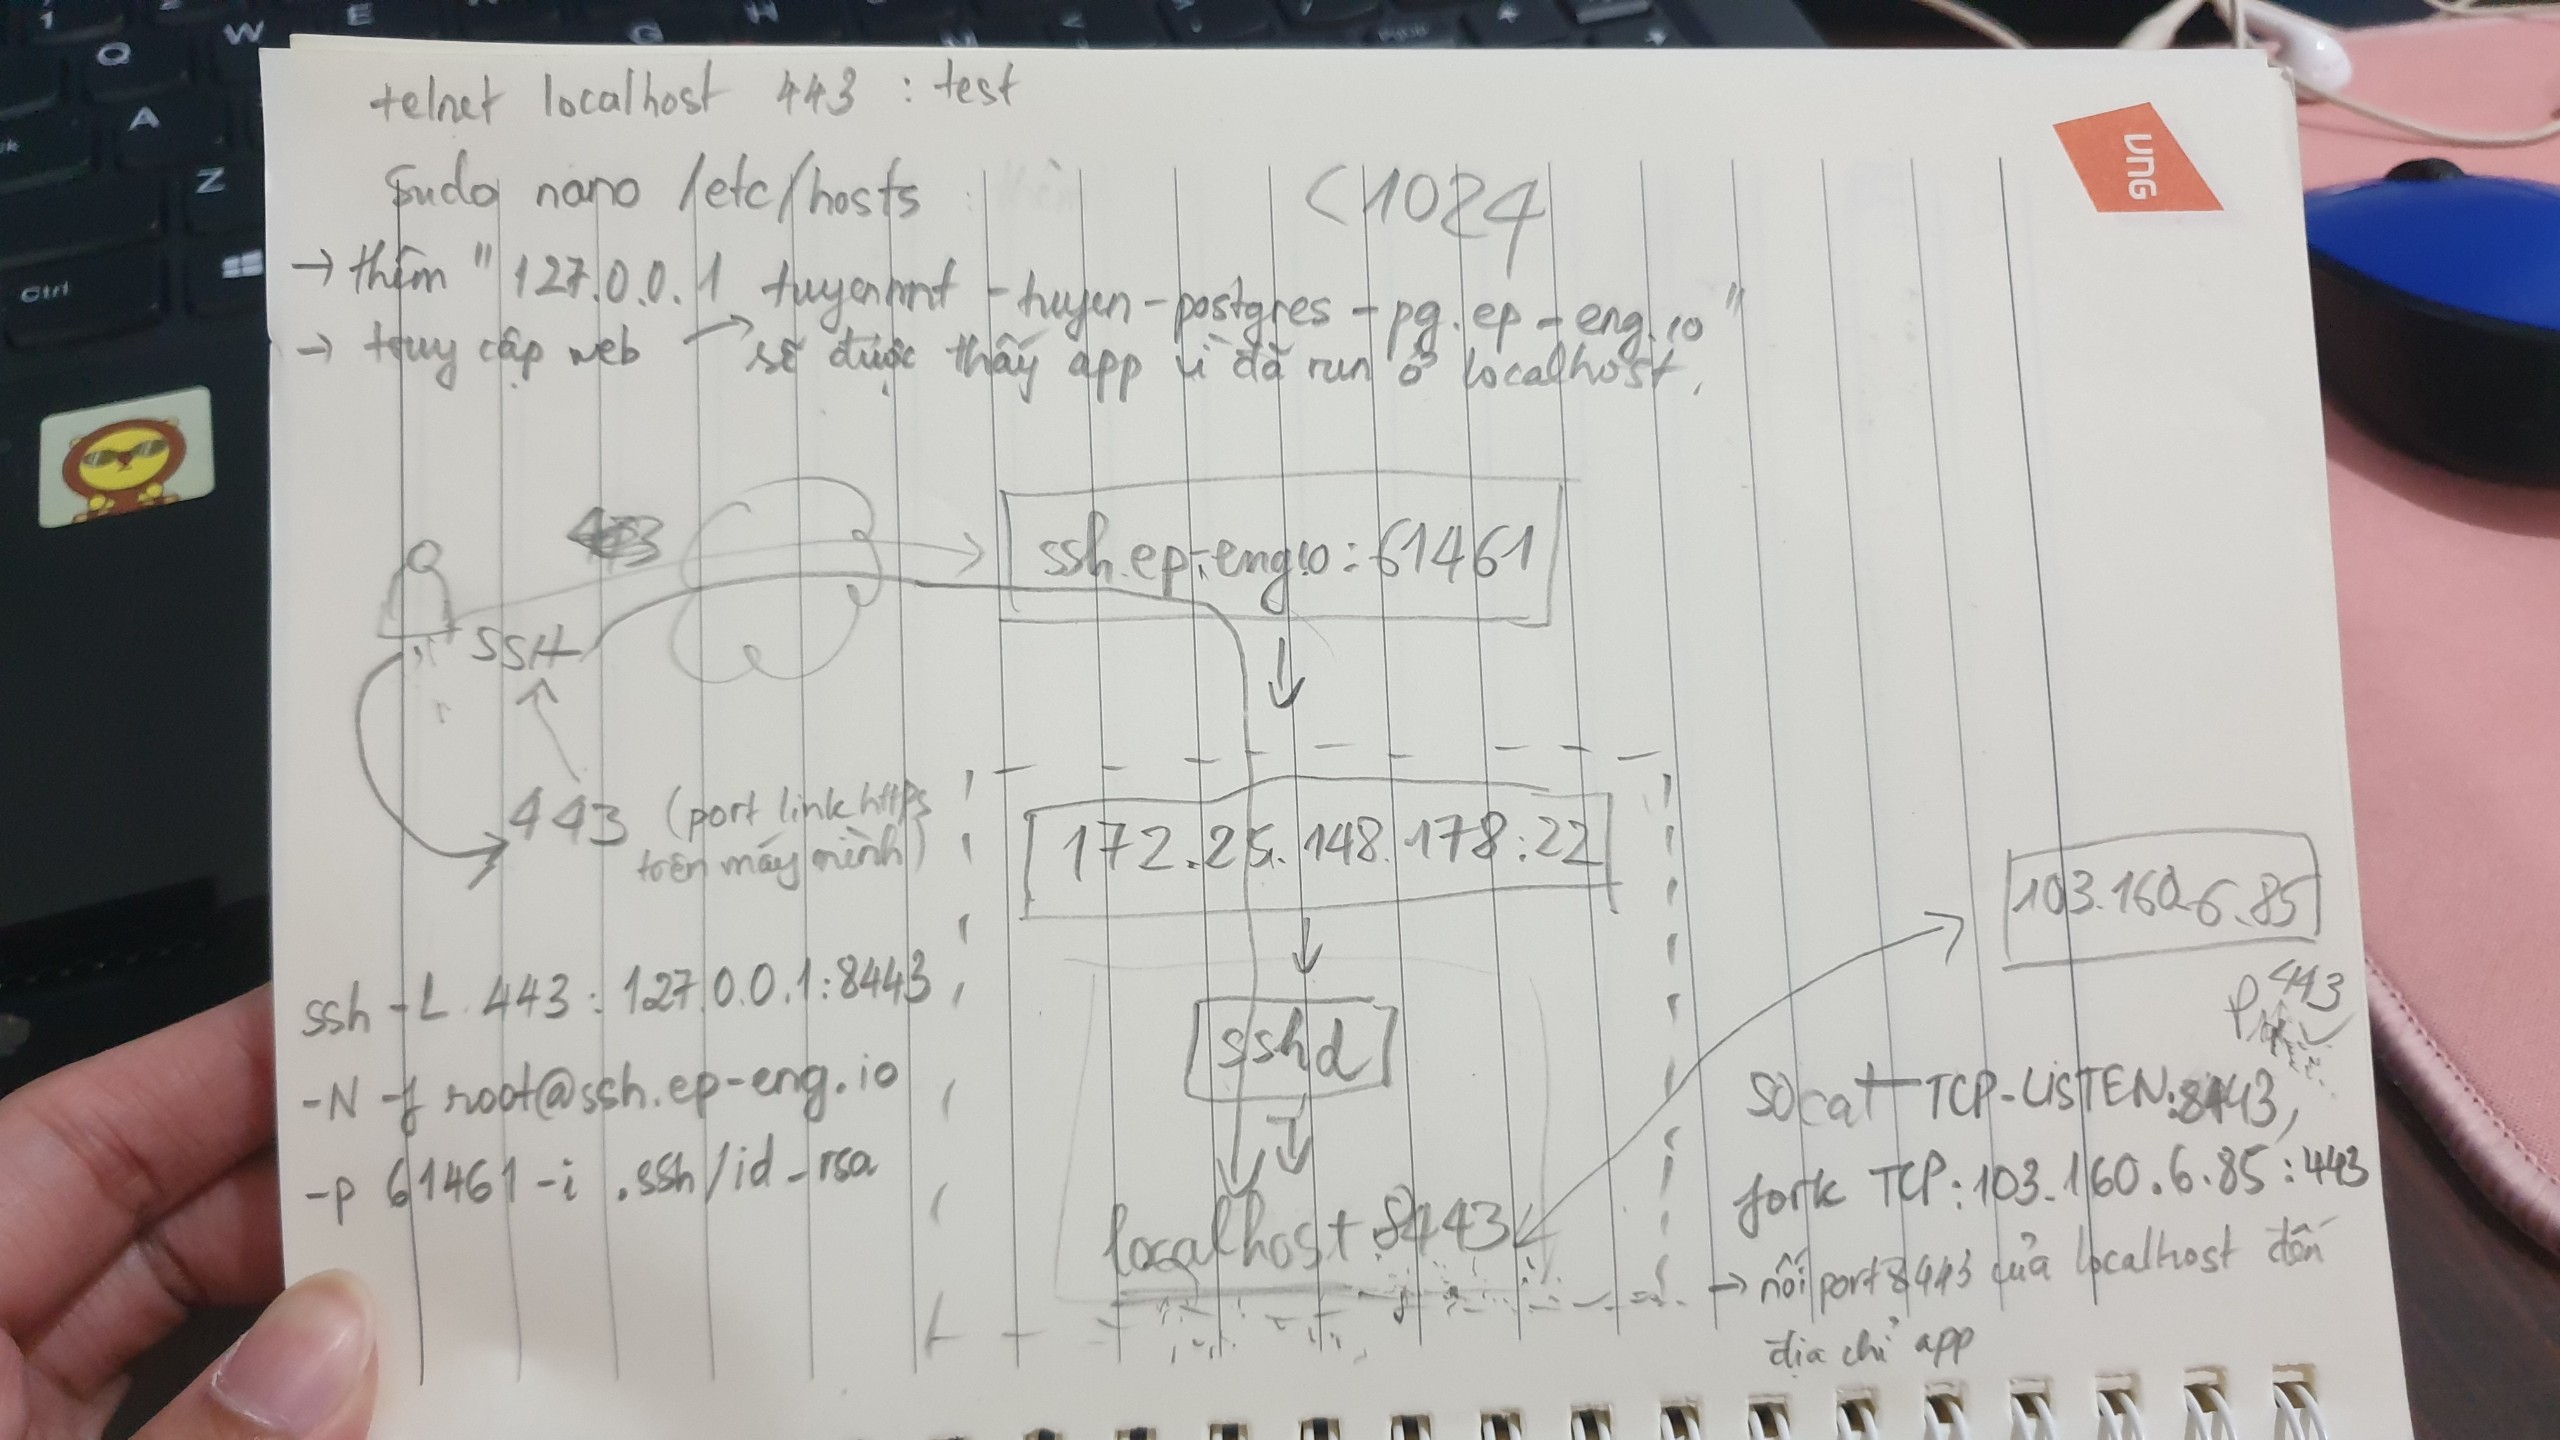 telnet localhost 443 : test
sudo nano /etc/hosts
<1024
→ thêm "127.0.0.1 tuyenmnt-tuyen-postgres-pg.ep-eng.io"
→ truy cập web → sẽ được thấy app vì đã run ở localhost.
VNG
ssh.ep-eng.io:61461
SSH
443 (port link https
trên máy mình)
172.25.148.178:22
103.160.6.85
443
sshd
ssh -L 443:127.0.0.1:8443
-N -f root@ssh.ep-eng.io
-p 61461 -i .ssh/id_rsa
localhost 8443
socat TCP-LISTEN:8443,
fork TCP:103.160.6.85:443
→ nối port 8443 của localhost đến
địa chỉ app
Q W E
A
Z
Ctrl